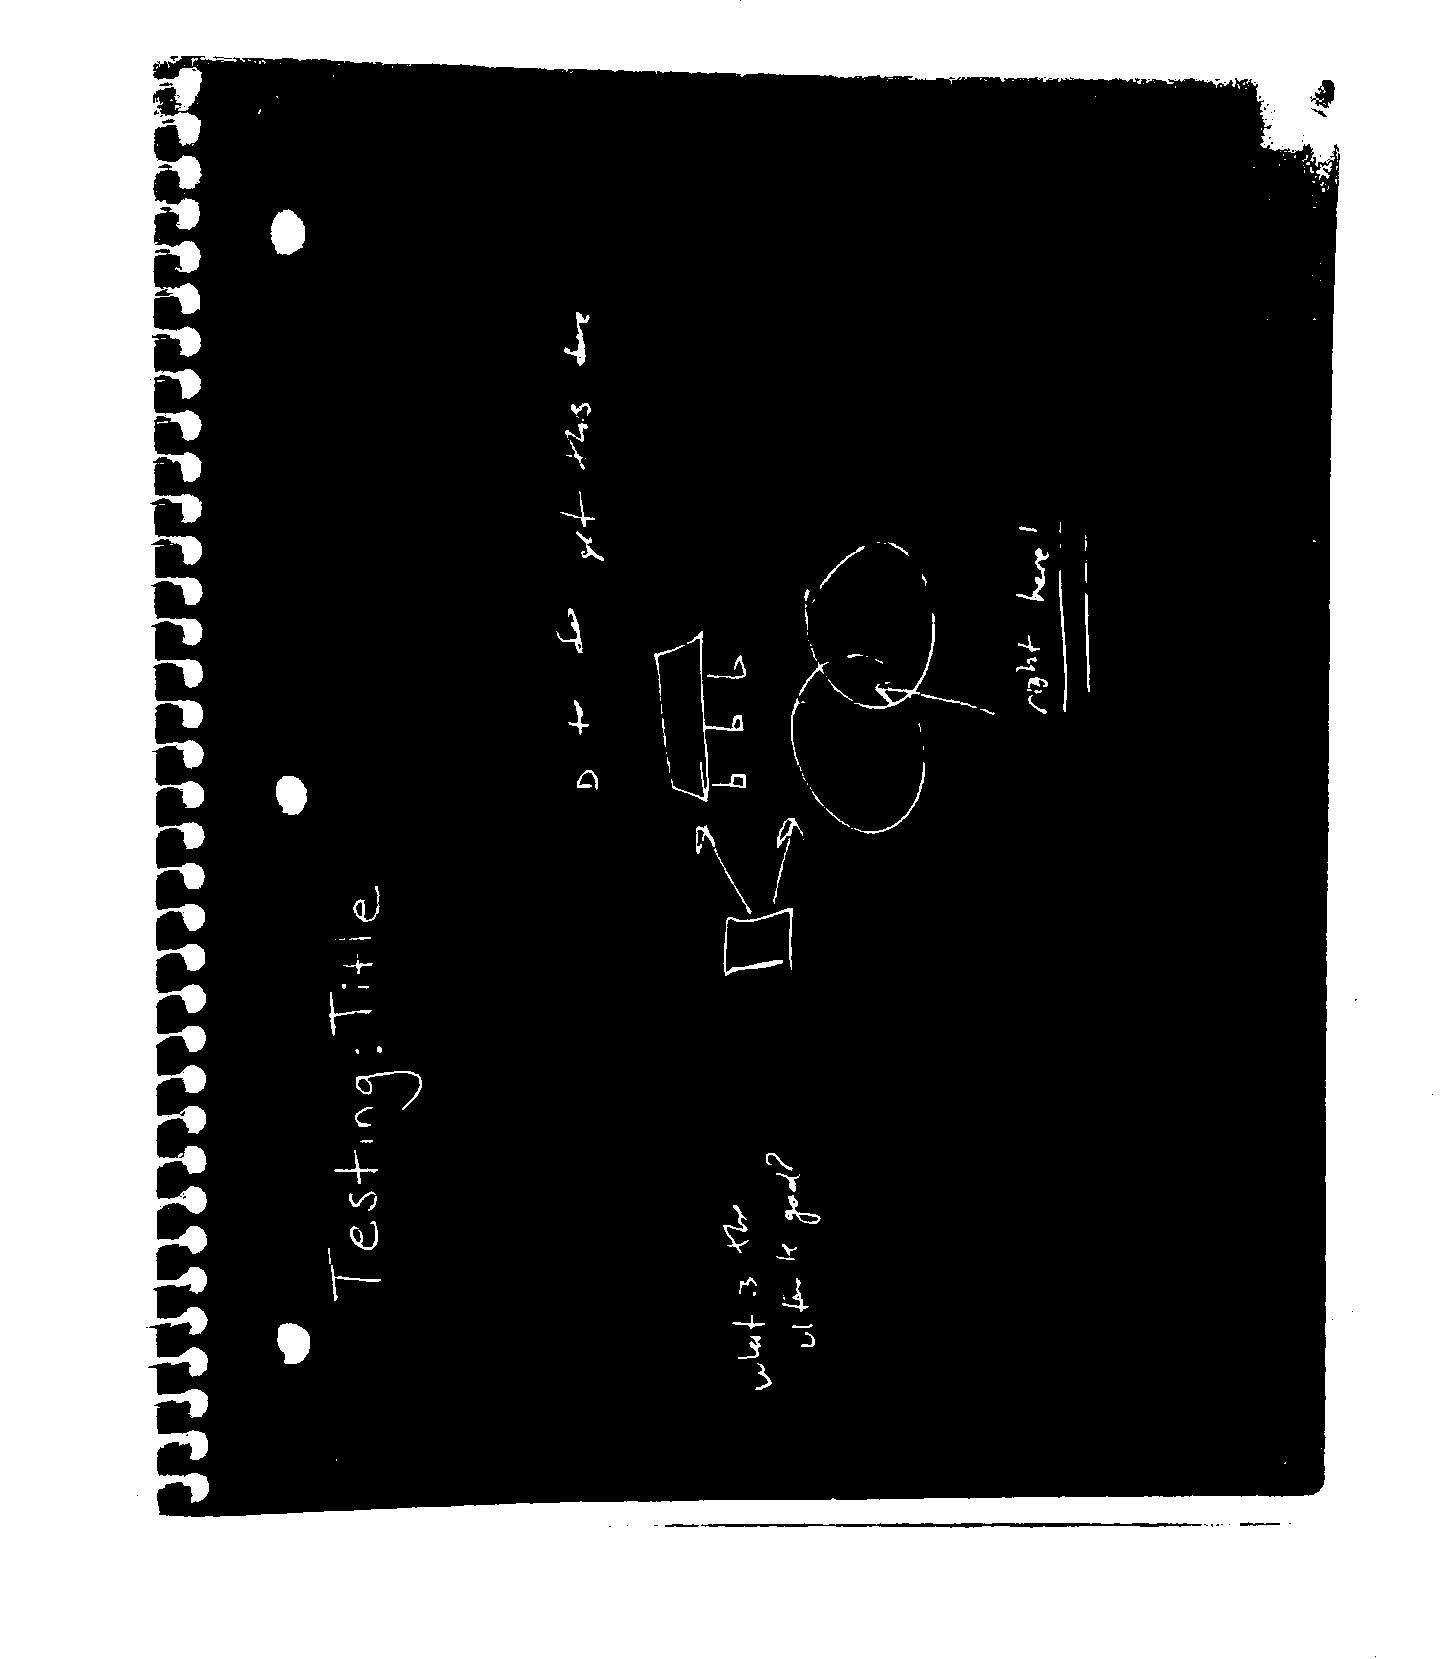 Testing: Title
D to do get this done
what is the
ultimate good?
right here!